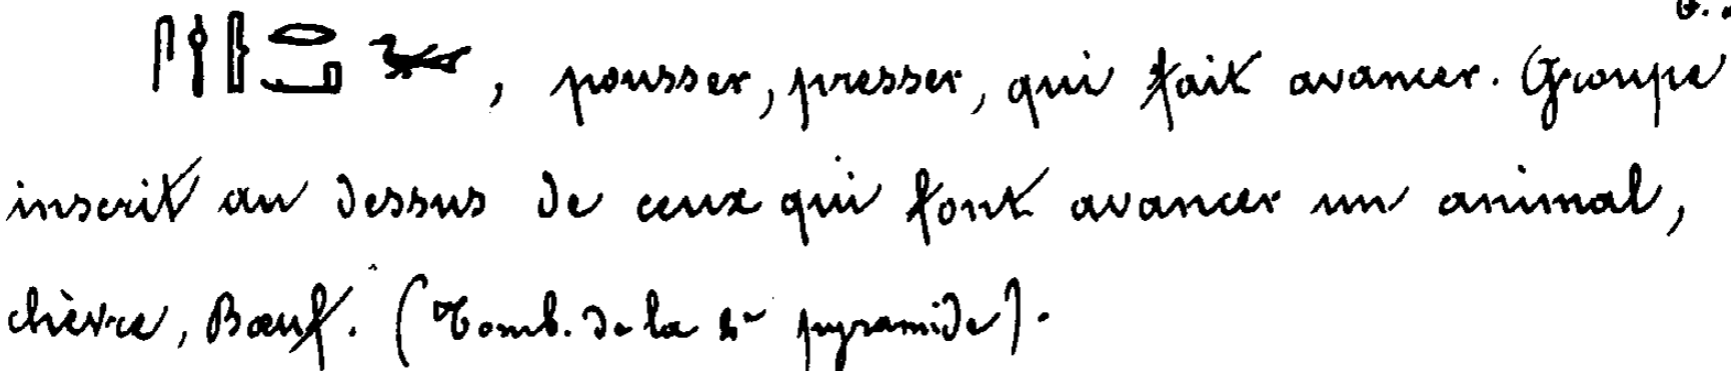 , pousser, presser, qui fait avancer. Groupe
inscrit au dessus de ceux qui font avancer un animal,
chèvre, Bœuf. (Tomb. de la 2e pyramide).